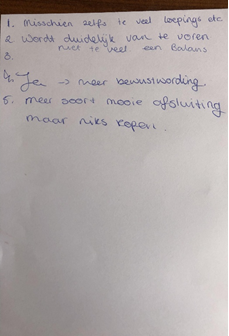 1. Misschien zelfs te veel loepings etc
2 Wordt duidelijk van te voren
niet te veel een Balans
3.
4. Ja → meer bewustwording
5. meer soort mooie afsluiting
maar niks kopen.